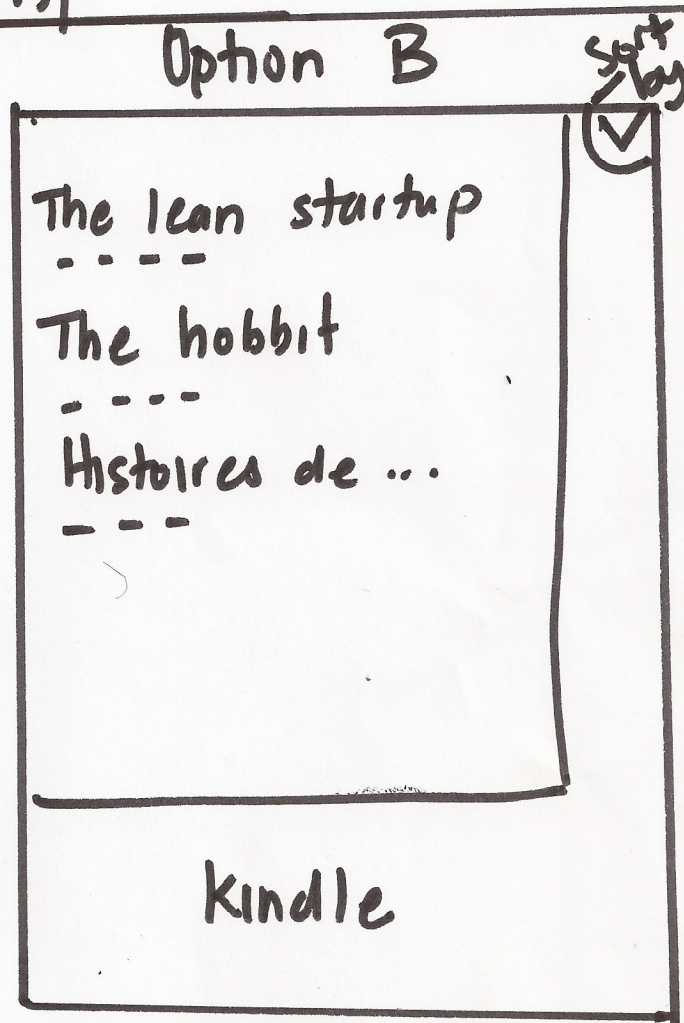 Option B
Sort
by
The lean startup
The hobbit
Histoires de ...
Kindle